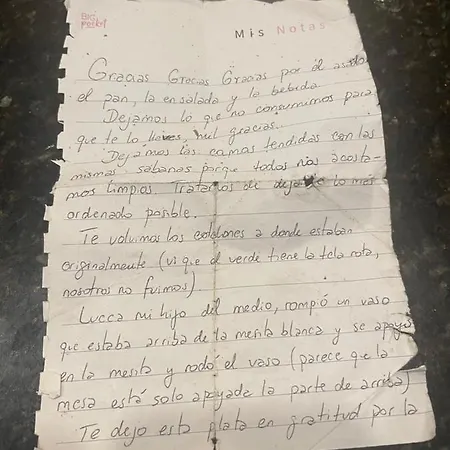 Mis Notas
Gracias Gracias Gracias por el asado
el pan, la ensalada y la bebida
Dejamos lo que no consumimos para
que te lo lleves, mil gracias.
Dejamos las camas tendidas con las
mismas sabanas porque todos nos acosta-
mos limpios. Tratamos de dejarte lo más
ordenado posible.
Te volvimos los colchones a donde estaban
originalmente (vi que el verde tiene la tela rota,
nosotros no fuimos).
Lucca mi hijo del medio, rompió un vaso
que estaba arriba de la mesita blanca y se apoyó
en la mesita y rodó el vaso (parece que la
mesa está solo apoyada la parte de arriba)
Te dejo esta plata en gratitud por la